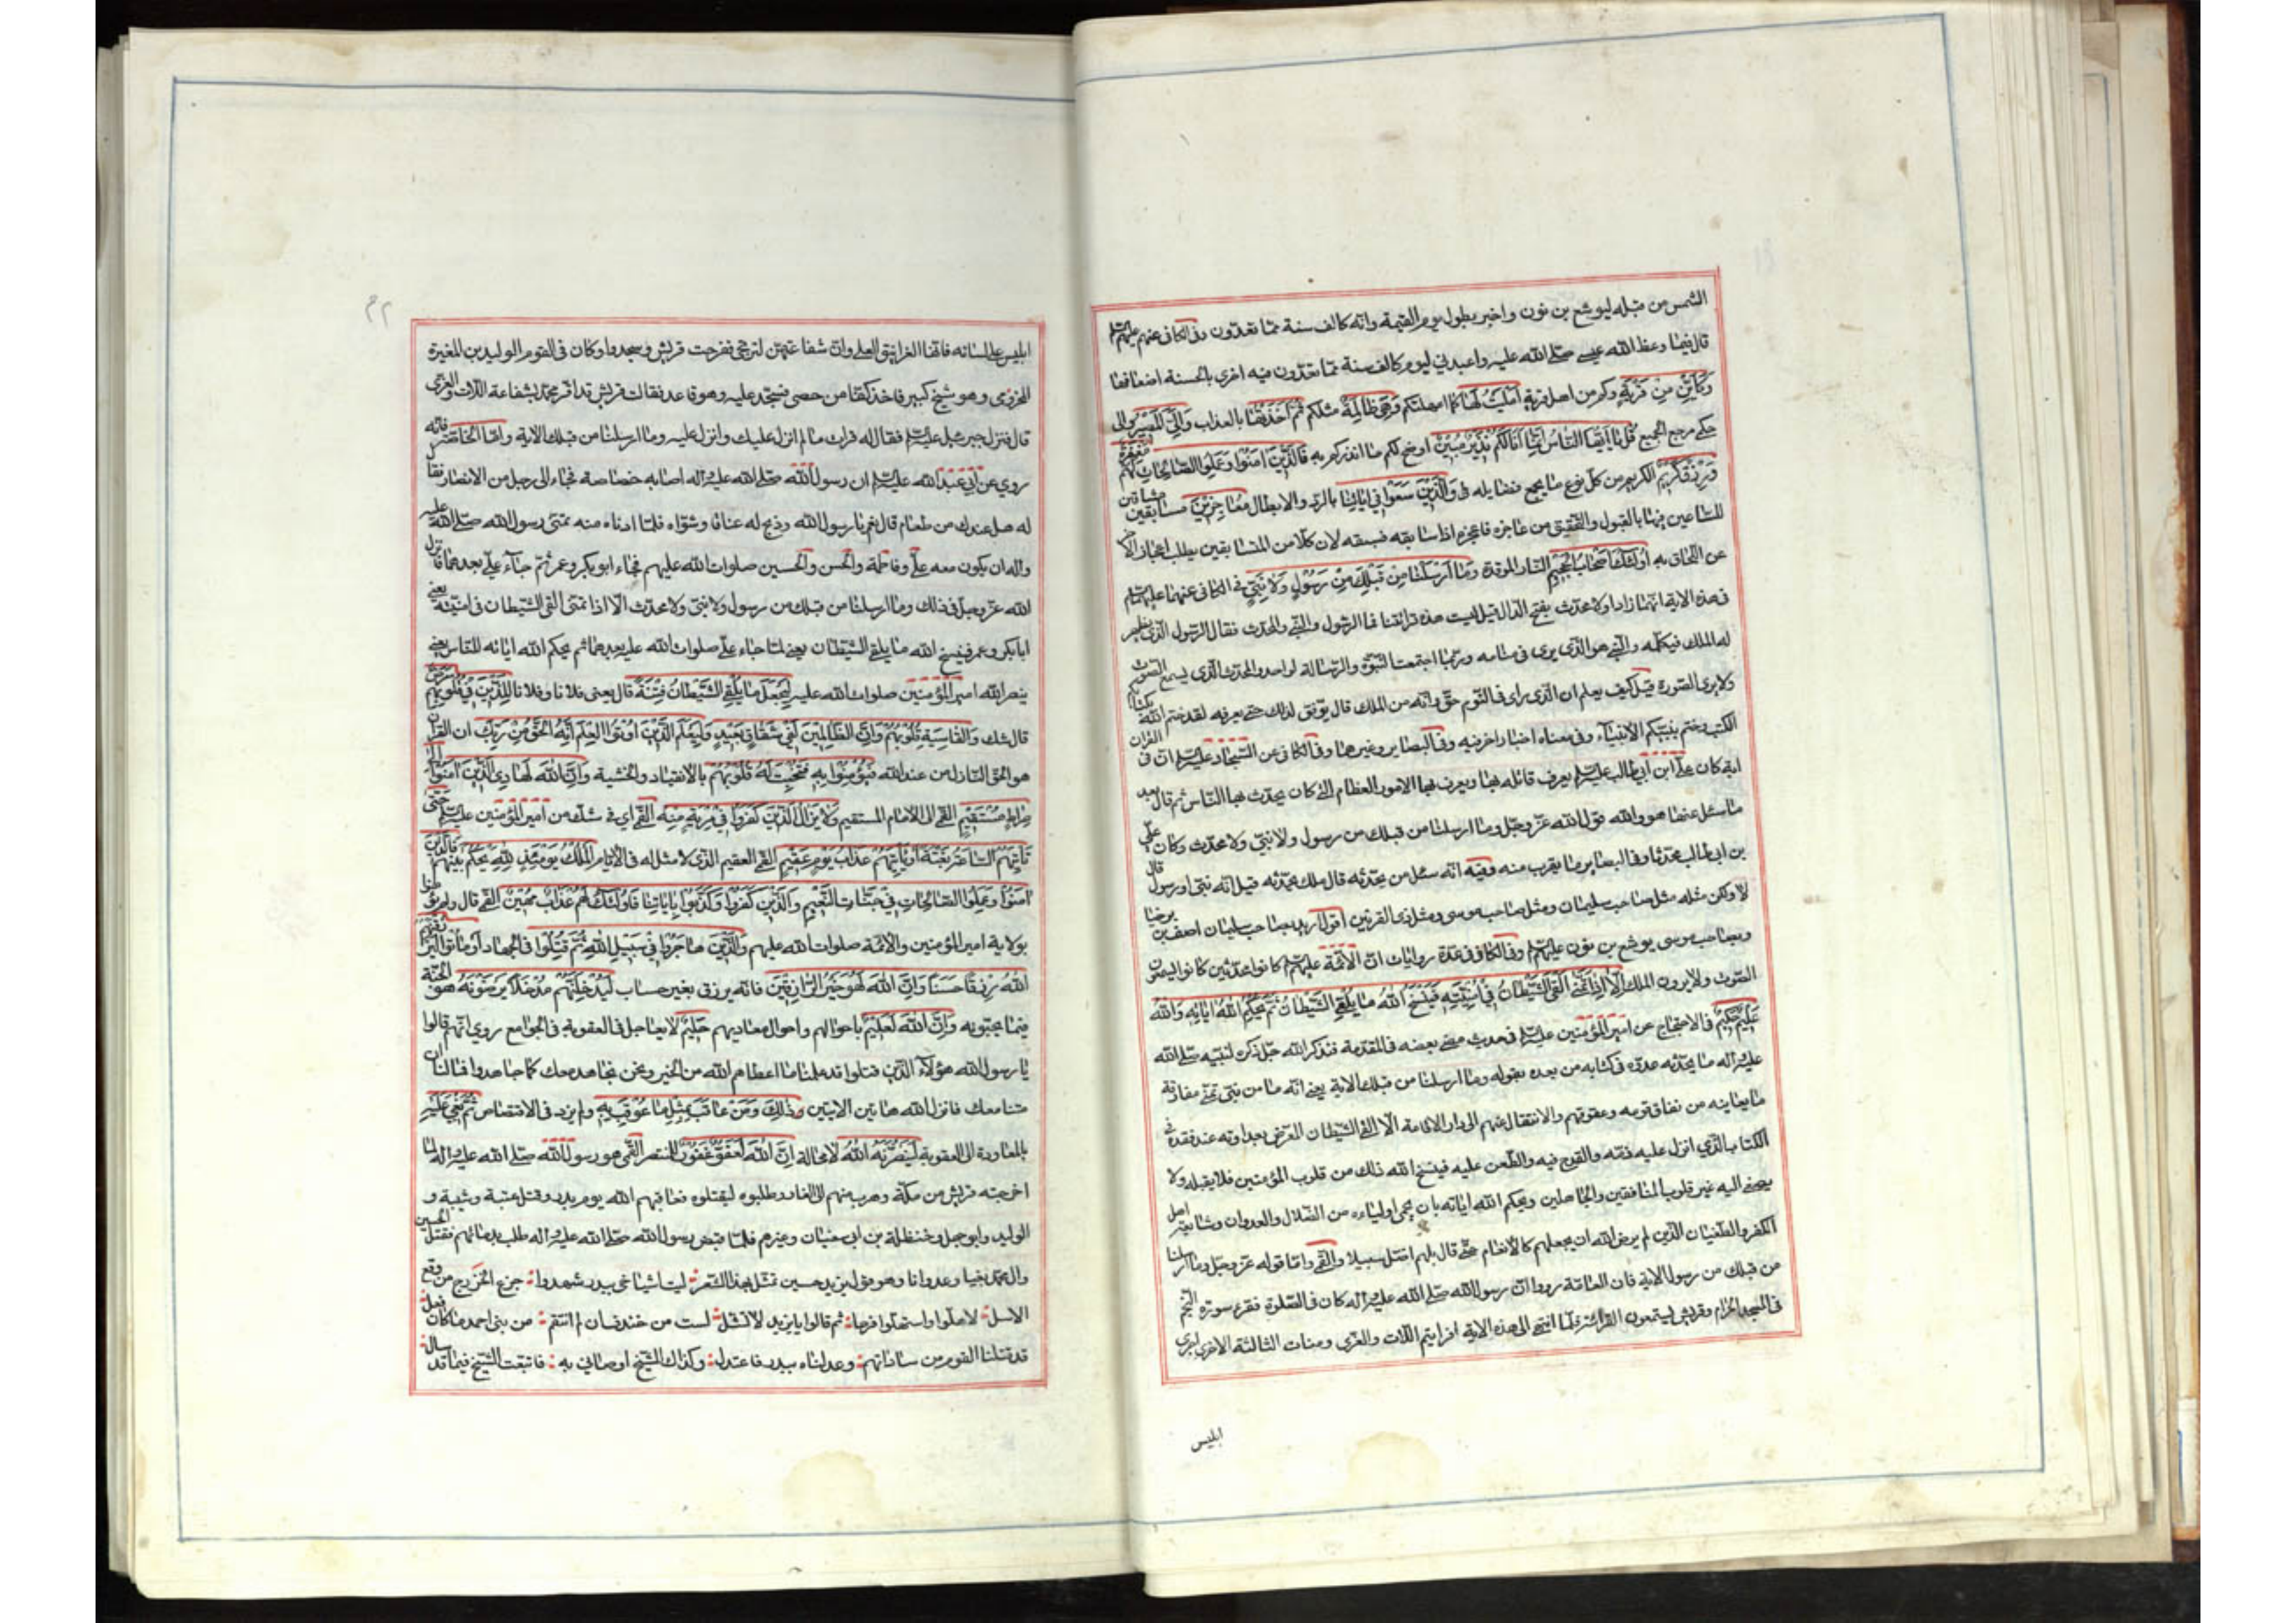 الشمس من قبله ليوشع بن نون واخبر بطول يوم القيمة وانه كالف سنة مما تعدّون وفى الكافى عنهم عليهم السلم
قال فيما وعظ الله عيسى صلى الله عليه واعبدنى ليوم كالف سنة مما تعدّون فيه اجزى بالحسنة اضعافها
وَكَاَيِّنْ مِنْ قَرْيَةٍ وكم من اهل قرية اَمْلَيْتُ لَهَا كما امهلتكم وَهِيَ ظَالِمَةٌ مثلكم ثُمَّ اَخَذْتُهَا بالعذاب وَاِلَيَّ الْمَصِيرُ والى
حكمى مرجع الجميع قُلْ يَا اَيُّهَا النَّاسُ اِنَّمَا اَنَا لَكُمْ نَذِيرٌ مُبِينٌ اوضح لكم ما انذركم به فَالَّذِينَ اٰمَنُوا وَعَمِلُوا الصَّالِحَاتِ لَهُمْ مَغْفِرَةٌ
وَرِزْقٌ كَرِيمٌ الكريم من كل نوع ما يجمع فضايله فى وَالَّذِينَ سَعَوْا فِي اٰيَاتِنَا بالرد والابطال مُعَاجِزِينَ مسابقين مشاقين
للساعين فيها بالقبول والتحقيق من عاجزه فاعجزه اذا سابقه فسبقه لان كلا من المتسابقين يطلب اعجاز الاخر
عن اللحاق به اُولٰئِكَ اَصْحَابُ الْجَحِيمِ النار الموقدة وَمَا اَرْسَلْنَا مِنْ قَبْلِكَ مِنْ رَسُولٍ وَلَا نَبِيٍّ فى الكافى عنهما عليهما السلم
فى هذه الاية انهما زادا ولا محدّث بفتح الدال قيل ليست هذه قرائتنا فما الرسول والنبى والمحدث فقال الرسول الذى يظهر
له الملك فيكلّمه والنبى هو الذى يرى فى منامه وربما اجتمعت النبوّة والرسالة لواحد والمحدث الذى يسمع الصوت
ولا يرى الصورة قيل كيف يعلم ان الذى راى فى النوم حق وانه من الملك قال يوفق لذلك حتى يعرفه لقد ختم الله بكتابكم
الكتب وختم بنبيّكم الانبيآء وفى معناه اخبار اخر فيه وفى البصاير وغيرهما وفى الكافى عن السجاد عليه السلم ان فى القران
اية كان على ابن ابى طالب عليه السلم يعرف قاتله بها ويعرف بها الامور العظام التى كان يحدّث بها الناس ثم قال بعد
ما سئل عنها هو والله قول الله عز وجل وما ارسلنا من قبلك من رسول ولا نبىّ ولا محدّث وكان علىّ
بن ابى طالب محدّثا وفى البصاير ما يقرب منه وفيه انه سئل من يحدّثه قال ملك يحدّثه قيل انه نبى او رسول قال
لا ولكن مثله مثل صاحب سليمان ومثل صاحب موسى ومثل ذى القرنين اقول اريد بصاحب سليمان اصف بن برخيا
وبصاحب موسى يوشع بن نون عليهم السلم وفى الكافى فى عدة روايات ان الائمة عليهم السلم كانوا محدّثين كانوا يسمعون
الصوت ولا يرون الملك اِلَّا اِذَا تَمَنّٰى اَلْقَى الشَّيْطَانُ فِي اُمْنِيَّتِهِ فَيَنْسَخُ اللهُ مَا يُلْقِي الشَّيْطَانُ ثُمَّ يُحْكِمُ اللهُ اٰيَاتِهِ وَاللهُ
عَلِيمٌ حَكِيمٌ فى الاحتجاج عن امير المؤمنين عليه السلم فى حديث مضى بعضه فى المقدمة فذكر الله جل ذكره لنبيه صلى الله
عليه واله ما يحدثه عدوّه فى كتابه من بعده بقوله وما ارسلنا من قبلك الاية يعنى انه ما من نبى تمنى مفارقة
ما يعاينه من نفاق قومه وعقوقهم والانتقال عنهم الى دار الاقامة الا القى الشيطان المعرّض بعداوته عند فقده فى
الكتاب الذى انزل عليه ذمّه والقدح فيه والطعن عليه فينسخ الله ذلك من قلوب المؤمنين فلا يقبله ولا
يصغى اليه غير قلوب المنافقين والجاهلين ويحكم الله اياته بان يحمى اولياءه من الضلال والعدوان ومشايعة اهل
الكفر والطغيان الذين لم يرض الله ان يجعلهم كالانعام حتى قال بل هم اضل سبيلا والقمى واما قوله عز وجل وما ارسلنا
من قبلك من رسول الاية فان العامة رووا ان رسول الله صلى الله عليه واله كان فى الصلوة فقرء سورة النجم
فى المسجد الحرام وقريش يستمعون لقرائته فلما انتهى الى هذه الاية افرايتم اللات والعزى ومنات الثالثة الاخرى اجرى
ابليس
٢٣
ابليس على لسانه فانها الغرانيق العلى وان شفاعتهن لترتجى ففرحت قريش وسجدوا وكان فى القوم الوليد بن المغيرة
المخزومى وهو شيخ كبير فاخذ كفا من حصى فسجد عليه وهو قاعد فقالت قريش قد اقر محمد بشفاعة اللات والعزى
قال فنزل جبرئيل عليه السلم فقال له قرات ما لم انزل عليك وانزل عليه وما ارسلنا من قبلك الاية واما الخاصة فانه
روى عن ابى عبد الله عليه السلم ان رسول الله صلى الله عليه واله اصابه خصاصة فجاء الى رجل من الانصار فقال
له هل عندك من طعام قال نعم يا رسول الله وذبح له عناقا وشواه فلما ادناه منه تمنى رسول الله صلى الله عليه
واله ان يكون معه على وفاطمة والحسن والحسين صلوات الله عليهم فجاء ابو بكر وعمر ثم جاء على بعدهما فانزل
الله عز وجل فى ذلك وما ارسلنا من قبلك من رسول ولا نبى ولا محدّث الا اذا تمنى القى الشيطان فى امنيّته يعنى
ابا بكر وعمر فينسخ الله ما يلقى الشيطان يعنى لما جاء على صلوات الله عليه بعدهما ثم يحكم الله اياته للناس يعنى
ينصر الله امير المؤمنين صلوات الله عليه لِيَجْعَلَ مَا يُلْقِي الشَّيْطَانُ فِتْنَةً قال يعنى فلانا وفلانا لِلَّذِينَ فِي قُلُوبِهِمْ مَرَضٌ
قال شك وَالْقَاسِيَةِ قُلُوبُهُمْ وَاِنَّ الظَّالِمِينَ لَفِي شِقَاقٍ بَعِيدٍ وَلِيَعْلَمَ الَّذِينَ اُوتُوا الْعِلْمَ اَنَّهُ الْحَقُّ مِنْ رَبِّكَ ان القران
هو الحق النازل من عند الله فَيُؤْمِنُوا بِهِ فَتُخْبِتَ لَهُ قُلُوبُهُمْ بالانقياد والخشية وَاِنَّ اللهَ لَهَادِي الَّذِينَ اٰمَنُوا اِلٰى
صِرَاطٍ مُسْتَقِيمٍ القمى الى الامام المستقيم وَلَا يَزَالُ الَّذِينَ كَفَرُوا فِي مِرْيَةٍ مِنْهُ القمى اى فى شك من امير المؤمنين عليه السلم حَتّٰى
تَاْتِيَهُمُ السَّاعَةُ بَغْتَةً اَوْ يَاْتِيَهُمْ عَذَابُ يَوْمٍ عَقِيمٍ القمى العقيم الذى لا مثل له فى الايام اَلْمُلْكُ يَوْمَئِذٍ لِلهِ يَحْكُمُ بَيْنَهُمْ فَالَّذِينَ
اٰمَنُوا وَعَمِلُوا الصَّالِحَاتِ فِي جَنَّاتِ النَّعِيمِ وَالَّذِينَ كَفَرُوا وَكَذَّبُوا بِاٰيَاتِنَا فَاُولٰئِكَ لَهُمْ عَذَابٌ مُهِينٌ القمى قال ولم يؤمنوا
بولاية امير المؤمنين والائمة صلوات الله عليهم وَالَّذِينَ هَاجَرُوا فِي سَبِيلِ اللهِ ثُمَّ قُتِلُوا فى الجهاد اَوْ مَاتُوا لَيَرْزُقَنَّهُمُ
اللهُ رِزْقًا حَسَنًا وَاِنَّ اللهَ لَهُوَ خَيْرُ الرَّازِقِينَ فانه يرزق بغير حساب لَيُدْخِلَنَّهُمْ مُدْخَلًا يَرْضَوْنَهُ هو الجنة
فيها ما يحبّونه وَاِنَّ اللهَ لَعَلِيمٌ باحوالهم واحوال معاديهم حَلِيمٌ لا يعاجل فى العقوبة فى الجوامع روى انهم قالوا
يا رسول الله هؤلآء الذين قتلوا قد علمنا ما اعطاهم الله من الخير ونحن نجاهد معك كما جاهدوا فما لنا ان
متنا معك فانزل الله هاتين الايتين ذٰلِكَ وَمَنْ عَاقَبَ بِمِثْلِ مَا عُوقِبَ بِهِ ولم يزد فى الاقتصاص ثُمَّ بُغِيَ عَلَيْهِ
بالمعاودة الى العقوبة لَيَنْصُرَنَّهُ اللهُ لا محالة اِنَّ اللهَ لَعَفُوٌّ غَفُورٌ للمنتصر القمى هو رسول الله صلى الله عليه واله لما
اخرجته قريش من مكة وهرب منهم الى الغار وطلبوه ليقتلوه فعاقبهم الله يوم بدر وقتل عتبة وشيبة و
الوليد وابو جهل وحنظلة بن ابى سفيان وغيرهم فلما قبض رسول الله صلى الله عليه واله طلب بدمائهم فقتل الحسين
وال محمد بغيا وعدوانا وهو قول يزيد حين تمثل بهذا الشعر ليت اشياخى ببدر شهدوا جزع الخزرج من وقع
الاسل لاهلّوا واستهلّوا فرحا ثم قالوا يا يزيد لا تشل لست من خندف ان لم انتقم من بنى احمد ما كان فعل
قد قتلنا القوم من ساداتهم وعدلناه ببدر فاعتدل وكذاك الشيخ اوصانى به فاتبعت الشيخ فيما قد سال